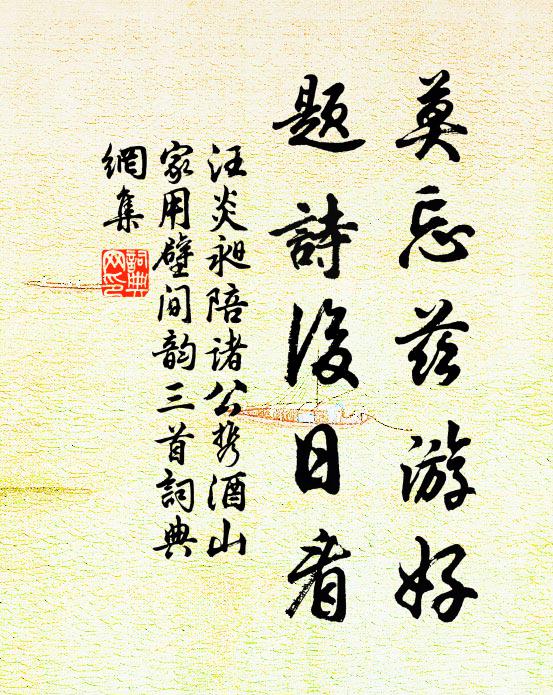 莫忘茲游好
題詩後日看
汪炎昶陪諸公携酒山
家用壁间韵三首詞典
網集
詞典
网印